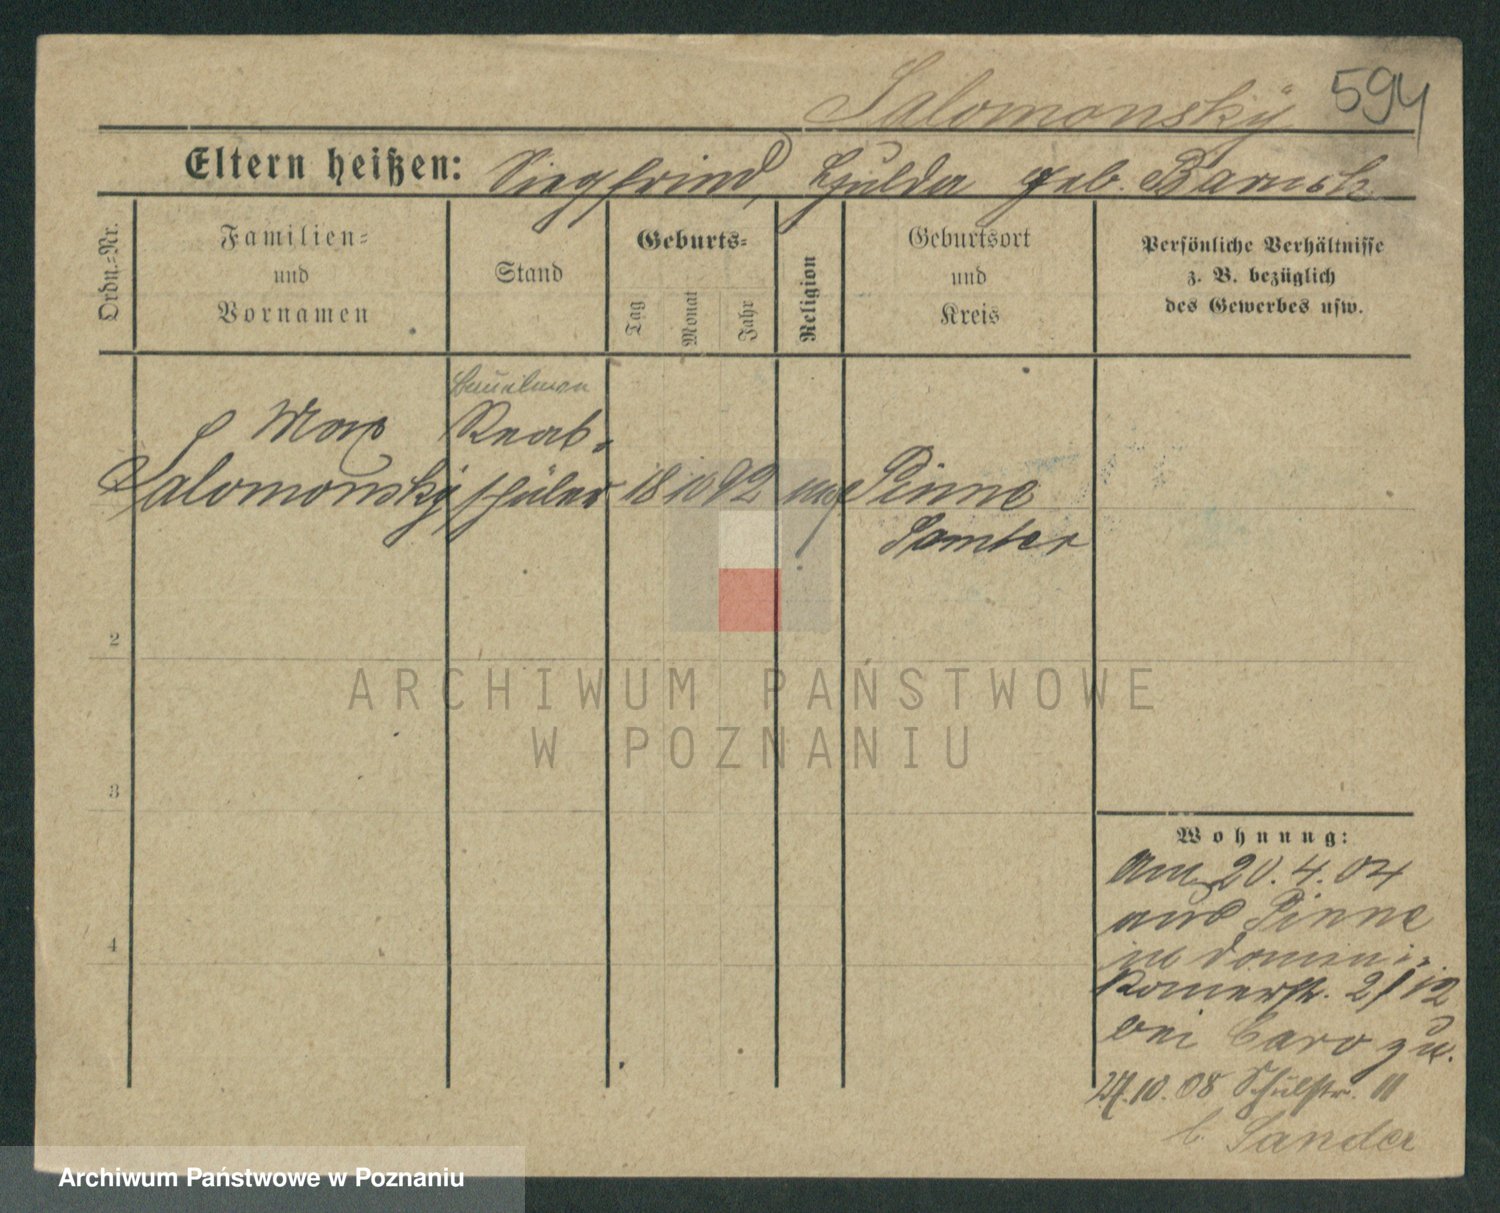 Salomonsky 594
Eltern heißen: Siegfried, Hulda geb. Baruch
Ordn.-Nr.
Familien-
und
Vornamen
Stand
Geburts-
Tag
Monat
Jahr
Religion
Geburtsort
und
Kreis
Persönliche Verhältnisse
z. B. bezüglich
des Gewerbes usw.
Max
Salomonsky
Real-
schüler
18 10 92
mos
Pinne
Samter
2
3
4
Wohnung:
Am 20.4.04
aus Pinne
Domini-
kanerstr. 2/12
bei Caro zu.
27.10.08 Schulstr. 11
b. Sander
ARCHIWUM PAŃSTWOWE
W POZNANIU
Archiwum Państwowe w Poznaniu